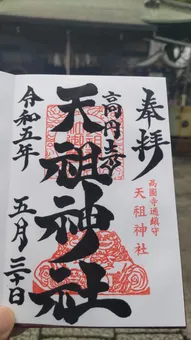 奉拝
高円寺
天祖神社
高圓寺通鎮守
天祖神社
令和五年
五月三十日